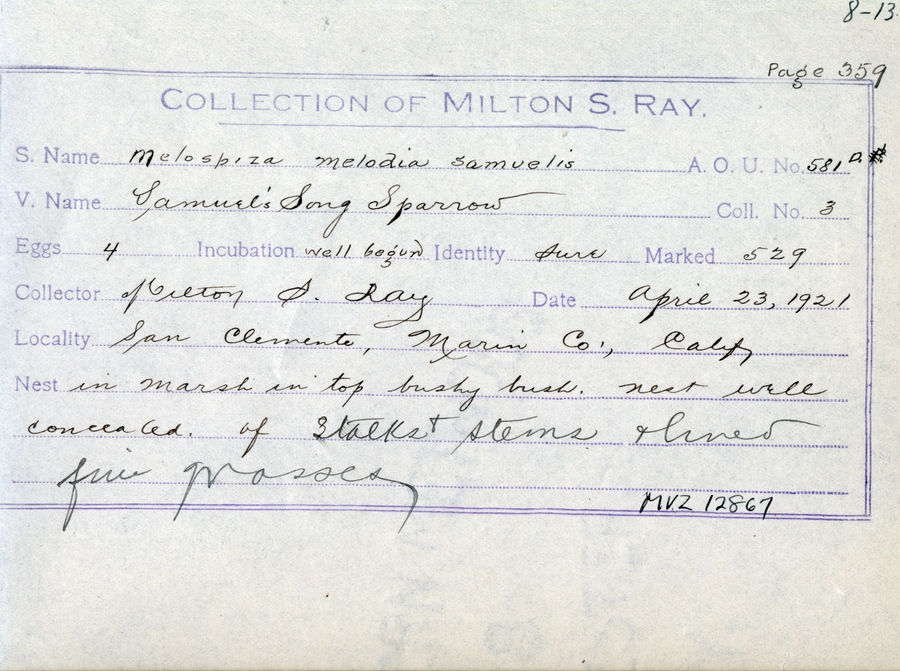 8-13
Page 359
COLLECTION OF MILTON S. RAY.
S. Name Melospiza melodia samuelis A. O. U. No. 581 D.
V. Name Samuel's Song Sparrow Coll. No. 3
Eggs 4 Incubation well begun Identity sure Marked 529
Collector Milton S. Ray Date April 23, 1921
Locality San Clemente, Marin Co., Calif,
Nest in marsh in top bushy bush. nest well
concealed. of Stalks + stems & lined
fine grasses
MVZ 12867